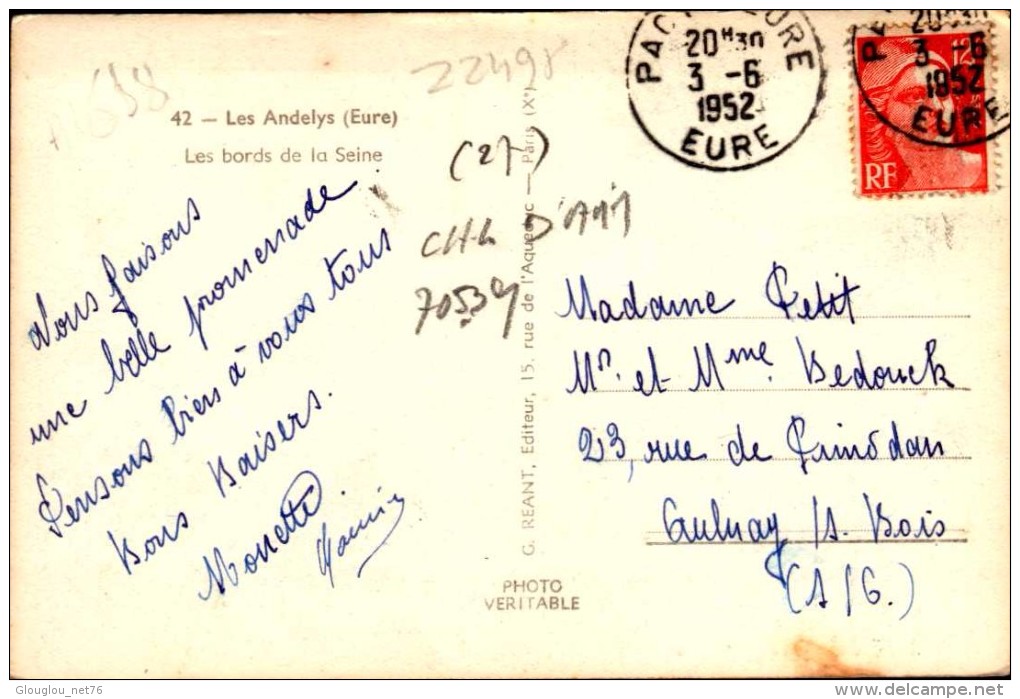 42 — Les Andelys (Eure)
Les bords de la Seine
22498
(27)
70539
Nous faisons
une belle promenade
Pensons bien à vous tous
Bons Baisers.
Monette
G. REANT, Editeur, 15, rue de l'Aqueduc — Paris (Xe)
PHOTO
VERITABLE
PACY EURE
20H30
3 -6
1952
EURE
20H30
3 -6
1952
EURE
12F
RF
Madame Petit
Mr. et Mme. Bedouck
23, rue de
Aulnay /s. Bois
(S/O.)
Glouglou_net76
www.delcampe.net